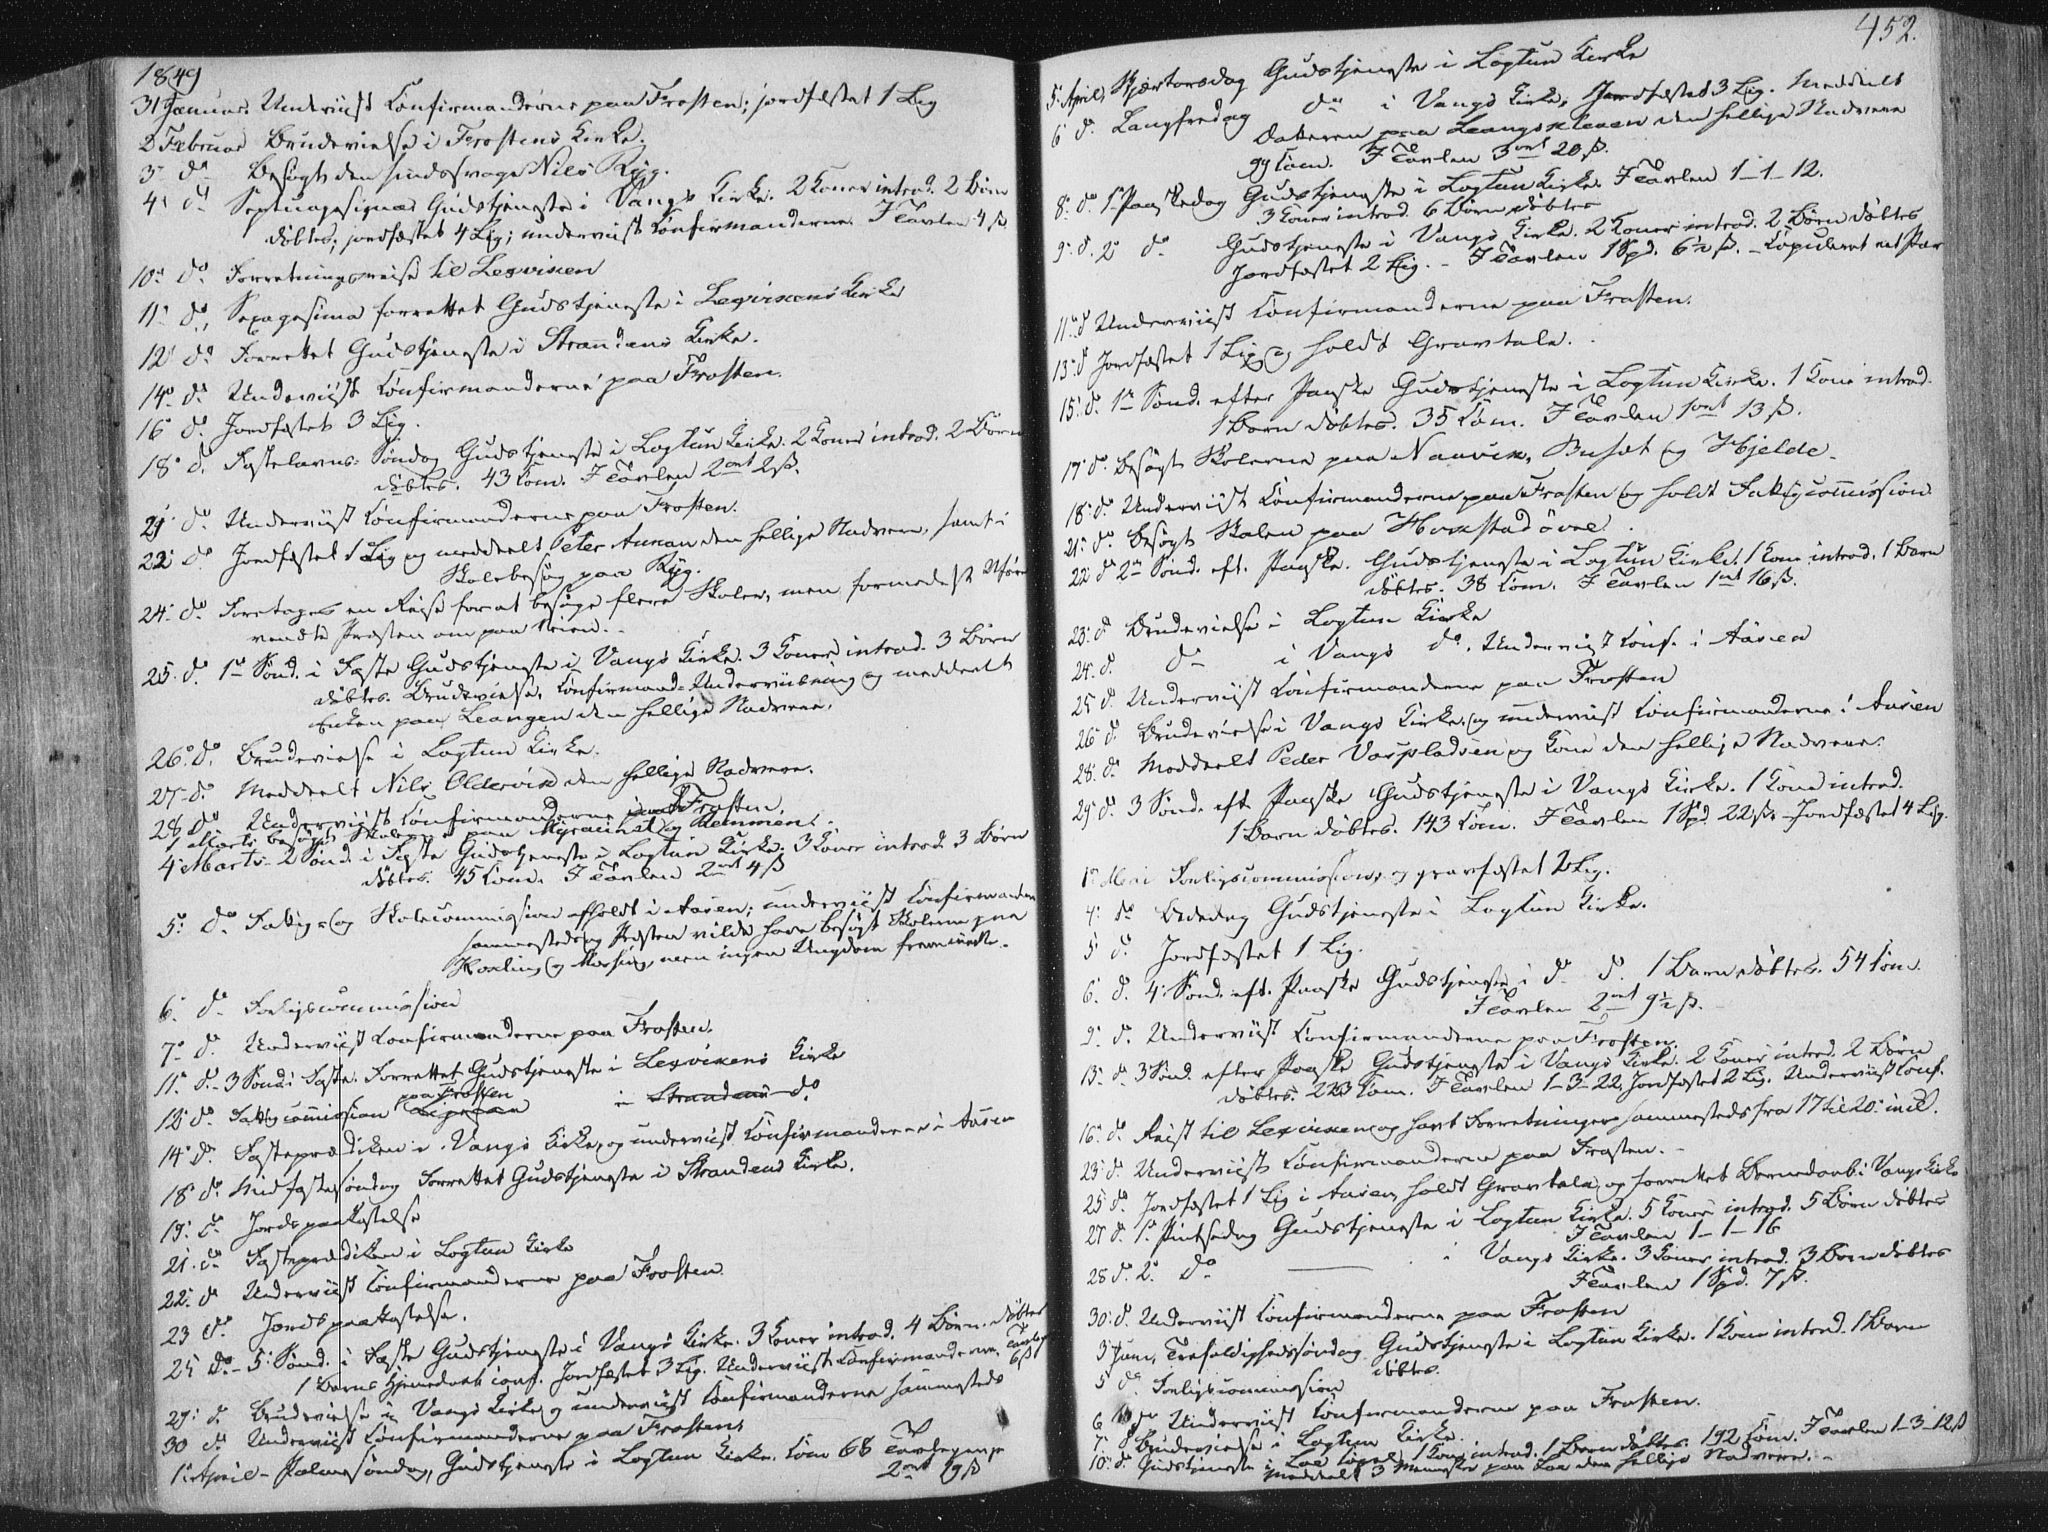 1849
31 Januar. Underviist Confirmanderne paa Frosten; jordfæstet 1 Lig
2 Februar Brudevielse i Frostens Kirke.
3 do Besøgt den sindssvage Nils Ryg.
4 do Septuagesima Gudstjeneste i Vangs Kirke. 2 Koner introd. 2 Børn
døbtes; jordfæstet 4 Lig; underviist Confirmanderne. I Tavlen 4 ß
10 do Forretningsreise til Lexviken
11 do, Sexagesima forrettet Gudstjeneste i Lexvikens Kirke
12 do Forrettet Gudstjeneste i Strandens Kirke.
14 do Underviist Confirmanderne paa Frosten.
16 do. Jordfæstet 3 Lig.
18 d. Fastelavns-Søndag Gudstjeneste i Logtun Kirke. 2 Koner introd. 2 Børn
døbtes. 43 Com. I Tavlen 2 ort 2 ß.
21 do Underviist Confirmanderne paa Frosten.
22 do Jordfæstet 1 Lig og meddeelt Peter Aunan den hellige Nadvere, samt
Skolebesøg paa Ryg.
24 do Foretages en Reise for at besøge flere Skoler, men formedelst Uføre
vendte Præsten om paa Veien.
25 do. 1ste Sønd. i Faste Gudstjeneste i Vangs Kirke. 3 Koner introd. 3 Børn
døbtes. Brudevielse, Confirmand-Underviisning og meddeelt
Enken paa Leangen den hellige Nadvere.
26 do. Brudevielse i Logtun Kirke.
27 do Meddeelt Nils Oldervik den hellige Nadvere.
28 do Underviist Confirmanderne paa Frosten.
1 Marts besøgt Skolerne paa
4 Marts - 2 Sønd. i Faste Gudstjeneste i Logtun Kirke. 3 Koner introd. 3 Børn
døbtes. 45 Com. I Tavlen 2 ort 4 ß
5 do Fattig- og Skolecommission afholdt i Aasen; underviist Confirmanderne
sammesteds og Præsten vilde have besøgt Skolerne paa
og men ingen Ungdom fremmødte.
6 do Forligscommission
7 d. Underviist Confirmanderne paa Frosten.
11 d. - 3 Sønd. i Faste. Forrettet Gudstjeneste i Lexvikens Kirke
12 do. Fattigcommission paa Frosten i Strandens do
14 d. Fasteprædiken i Vangs Kirke, og underviist Confirmanderne i Aasen
18 do Midfastesøndag Forrettet Gudstjeneste i Strandens Kirke.
19 d. Jordspaakastelse
21 do Fasteprædiken i Logtun Kirke
22 d. Underviist Confirmanderne paa Frosten
23 do. Jordspaakastelse.
25 do - 5 Sønd. i Faste Gudstjeneste i Vangs Kirke. 3 Koner introd. 4 Børn døbtes
1 Barns Hjemmedaab conf. Jordfæstet 3 Lig. Underviist Confirmanderne. Tavlen 6 ß
29 d. Brudevielse i Vangs Kirke og underviist Confirmanderne sammesteds
30 do Underviist Confirmanderne paa Frosten
1 April - Palmesøndag, Gudstjeneste i Logtun Kirke. Com 68 Tavlepenge
2 ort 19 ß
452.
5 April, Skjærtorsdag Gudstjeneste i Logtun Kirke
6 d. Langfredag do i Vangs Kirke. Jordfæstet 3 Lig. Meddeelt
Datteren paa Leangskleven den hellige Nadvere
99 Com. I Tavlen 3 ort 20 ß.
8 do 1 Paaskedag Gudstjeneste i Logtun Kirke. I Tavlen 1-1-12.
3 Koner introd. 6 Børn døbtes
9 d. 2 do Gudstjeneste i Vangs Kirke. 2 Koner introd. 2 Børn døbtes
Jordfæstet 2 Lig. - I Tavlen 1 Spd. 6½ ß. - Copuleret eet Par
11 d Underviist Confirmanderne paa Frosten.
13 d Jordfæstet 1 Lig og holdt Gravtale.
15 d. 1ste Sønd. efter Paaske Gudstjeneste i Logtun Kirke. 1 Kone introd.
1 Barn døbtes. 35 Com. I Tavlen 1 ort 13 ß.
17 do Besøgt Skolerne paa Nauvik, Buset og Hjelde.
18 d. Underviist Confirmanderne paa Frosten og holdt Fattigcommission
21 do. Besøgt Skolen paa Hokstad øvre.
22 do 2den Sønd. eft. Paaske. Gudstjeneste i Logtun Kirke. 1 Kone introd. 1 Barn
døbtes. 38 Com. I Tavlen 1 ort 16 ß.
23 d Brudevielse i Logtun Kirke
24 d. do i Vangs do. Underviist Conf. i Aasen
25 d. Underviist Confirmanderne paa Frosten
26 d. Brudevielse i Vangs Kirke, og underviist Confirmanderne i Aasen
28 d. Meddeelt Peder og Kone den hellige Nadvere.
29 do. 3 Sønd. eft. Paaske Gudstjeneste i Vangs Kirke. 1 Kone introd.
1 Barn døbtes. 143 Com. I Tavlen 1 Spd. 22 ß. - Jordfæstet 4 Lig.
1 Mai Forligscommission, og gravfæstet 2 Lig.
4 do Bededag Gudstjeneste i Logtun Kirke.
5 do Jordfæstet 1 Lig.
6 d. 4 Sønd. eft. Paaske Gudstjeneste i d. d. 1 Barn døbtes. 54 Com.
I Tavlen 2 ort 9½ ß.
9 d. Underviist Confirmanderne paa Frosten.
13 do 3 Sønd. efter Paaske Gudstjeneste i Vangs Kirke. 2 Koner introd. 2 Børn
døbtes. 223 Com. I Tavlen 1-3-22, Jordfæstet 2 Lig. Underviist Conf.
16 do. Reist til Lexviken og havt Forretninger sammesteds fra 17 til 20 incl.
23 do Underviist Confirmanderne paa Frosten. -
25 do. Jordfæstet 1 Lig i Aasen, holdt Gravtale og forrettet Barnedaab i Vangs Kirke
27 d. 1 Pintsedag Gudstjeneste i Logtun Kirke. 5 Koner introd. 5 Børn døbtes
I Tavlen 1-1-16
28 d. 2. do i Vangs Kirke. 3 Koner introd. 3 Børn døbtes
I Tavlen 1 Spd. 7 ß.
30 d. Underviist Confirmanderne paa Frosten
3 Juni, Trefoldighedssøndag Gudstjeneste i Logtun Kirke. 1 Kone introd. 1 Barn
døbtes.
5 do Forligscommission
6 do Underviist Confirmanderne paa Frosten.
7 d Brudevielse i Logtun Kirke.
10 d. Gudstjeneste i 1 Kone introd. 1 Barn døbtes. 192 Com. I Tavlen 1-3-12 ß
meddeelt 3 paa den hellige Nadvere. -